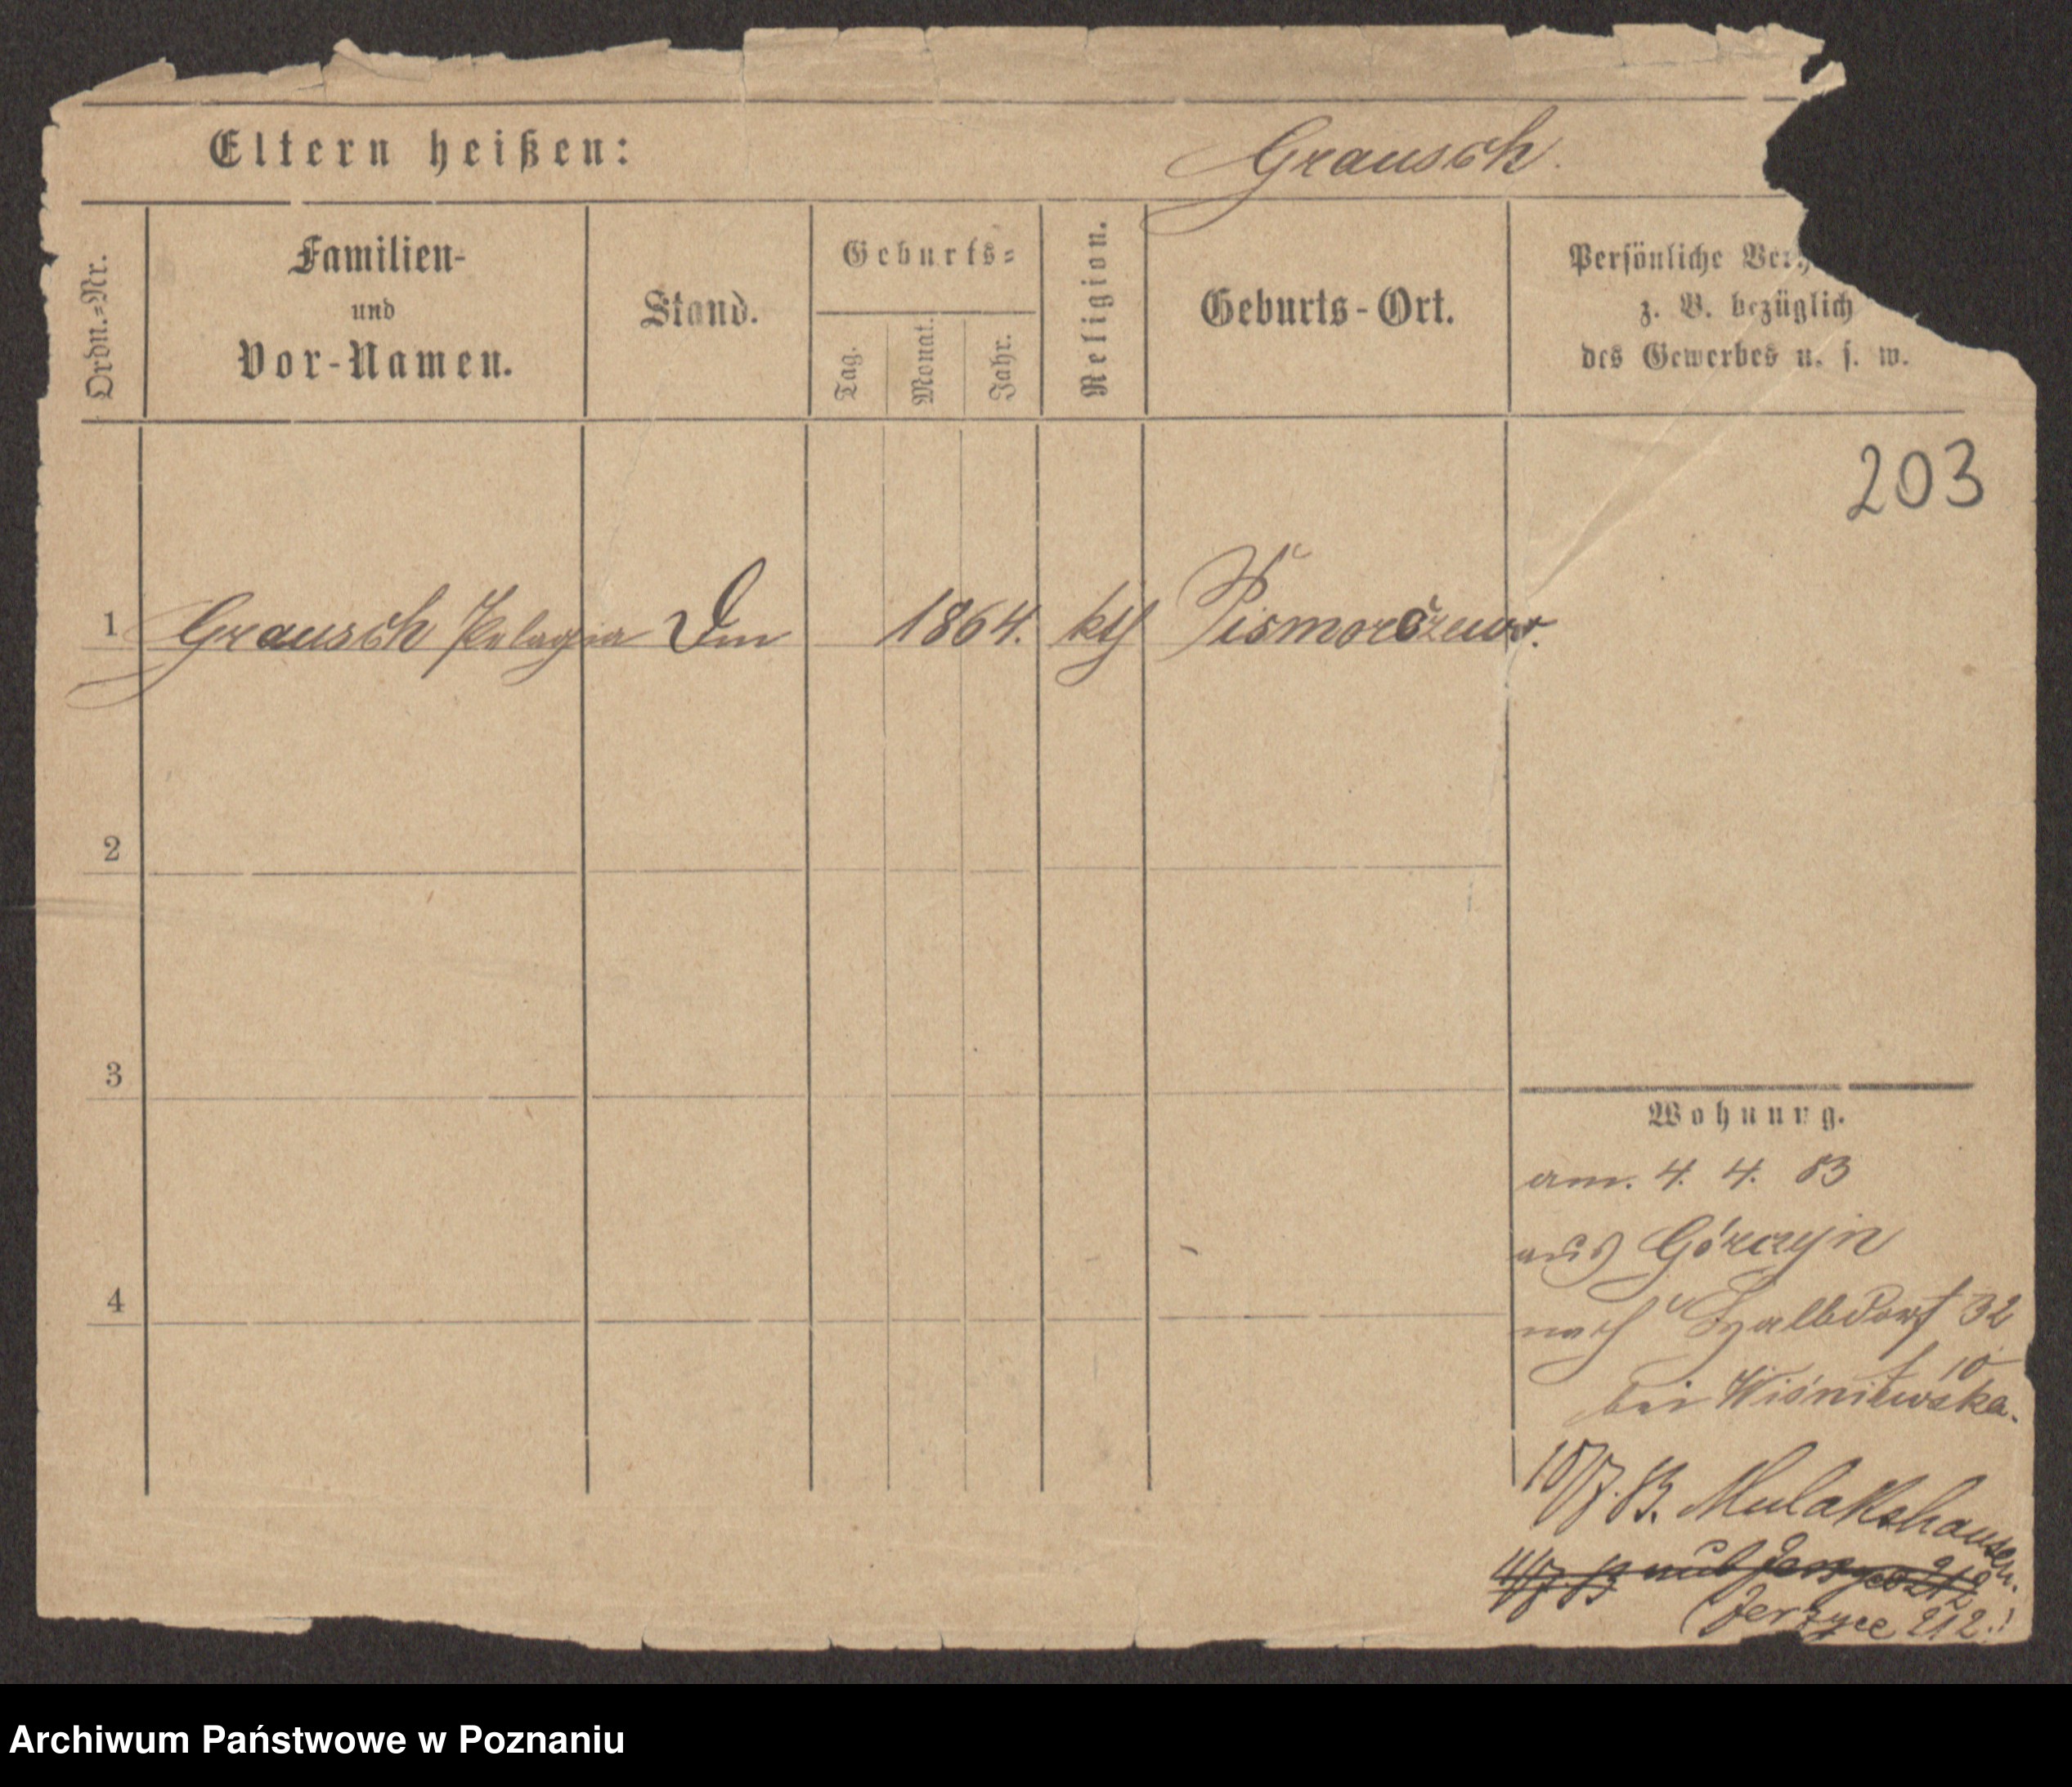 Eltern heißen:
Grausch.
Ordn.=Nr.
Familien-
und
Vor-Namen.
Stand.
Geburts=
Tag.
Monat.
Jahr.
Religion.
Geburts-Ort.
Persönliche
z. B. bezüglich
des Gewerbes u. s. w.
203
1 Grausch Pelagia 1864. kth
2
3
4
Wohnung.
am. 4. 4. 83
aus Górczyn
nach Halbdorf 32
bei Wiśniewska.
10/7. 83. Mulakshausen.
Jerzyce 212.
Archiwum Państwowe w Poznaniu